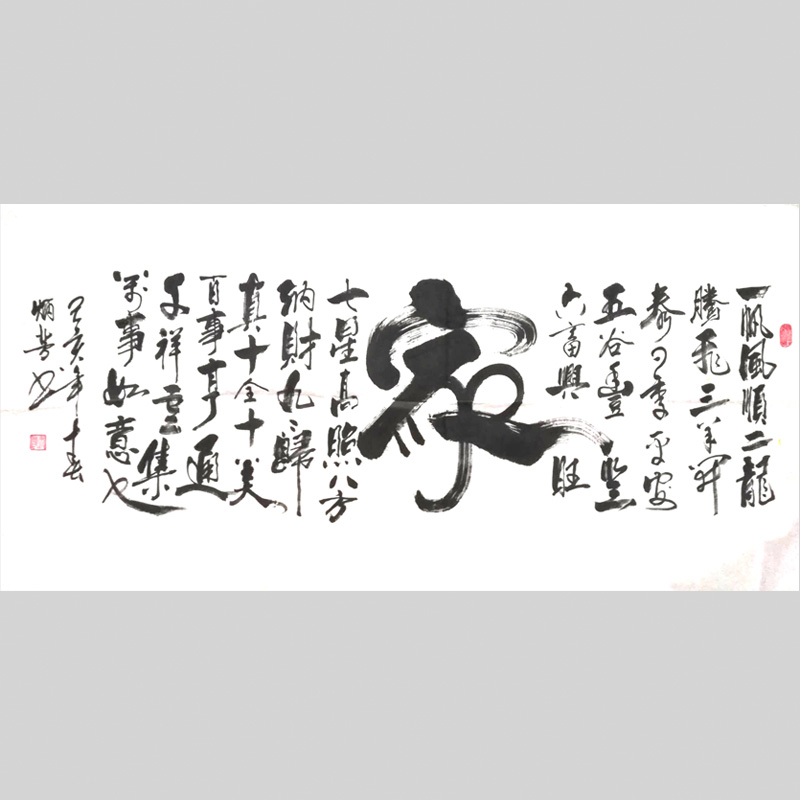 一帆風順二龍
騰飛三羊開
泰四季平安
五谷豐登
六畜興旺
家
七星高照八方
納財九々歸
真十全十美
百事亨通
千祥雲集
萬事如意
己亥年
炳芳书